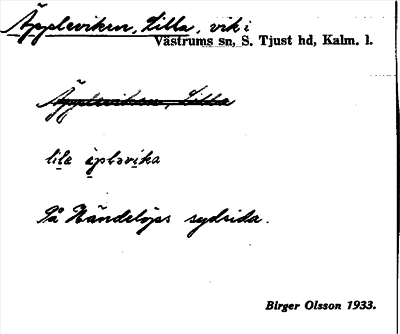 Äppleviken, Lilla, vik i
Västrums sn, S. Tjust hd, Kalm. l.
Äppleviken, Lilla
lila äpləvika
På Händelöps sydsida.
Birger Olsson 1933.